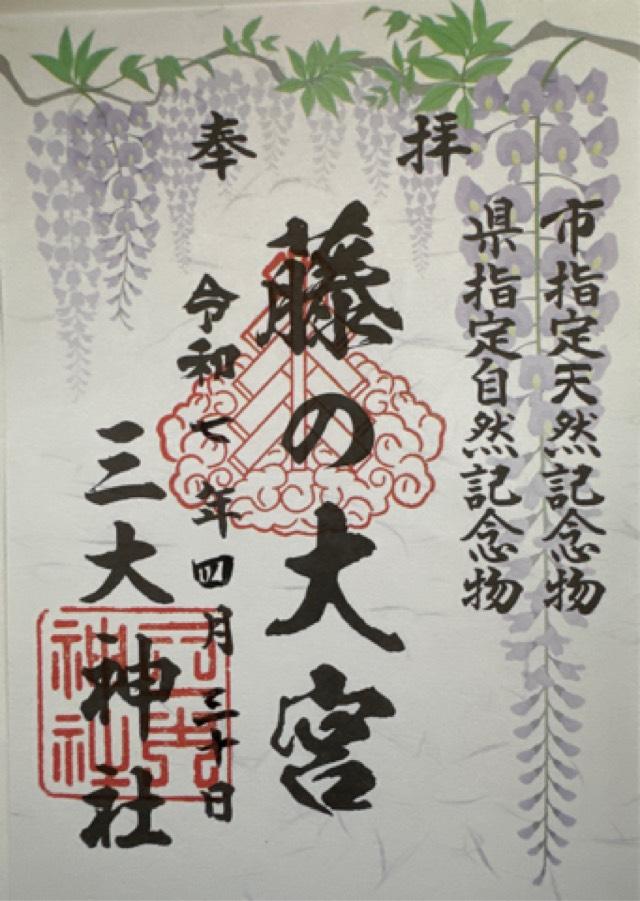 奉拝
市指定天然記念物
県指定自然記念物
藤の大宮
令和七年四月三十日
三大神社